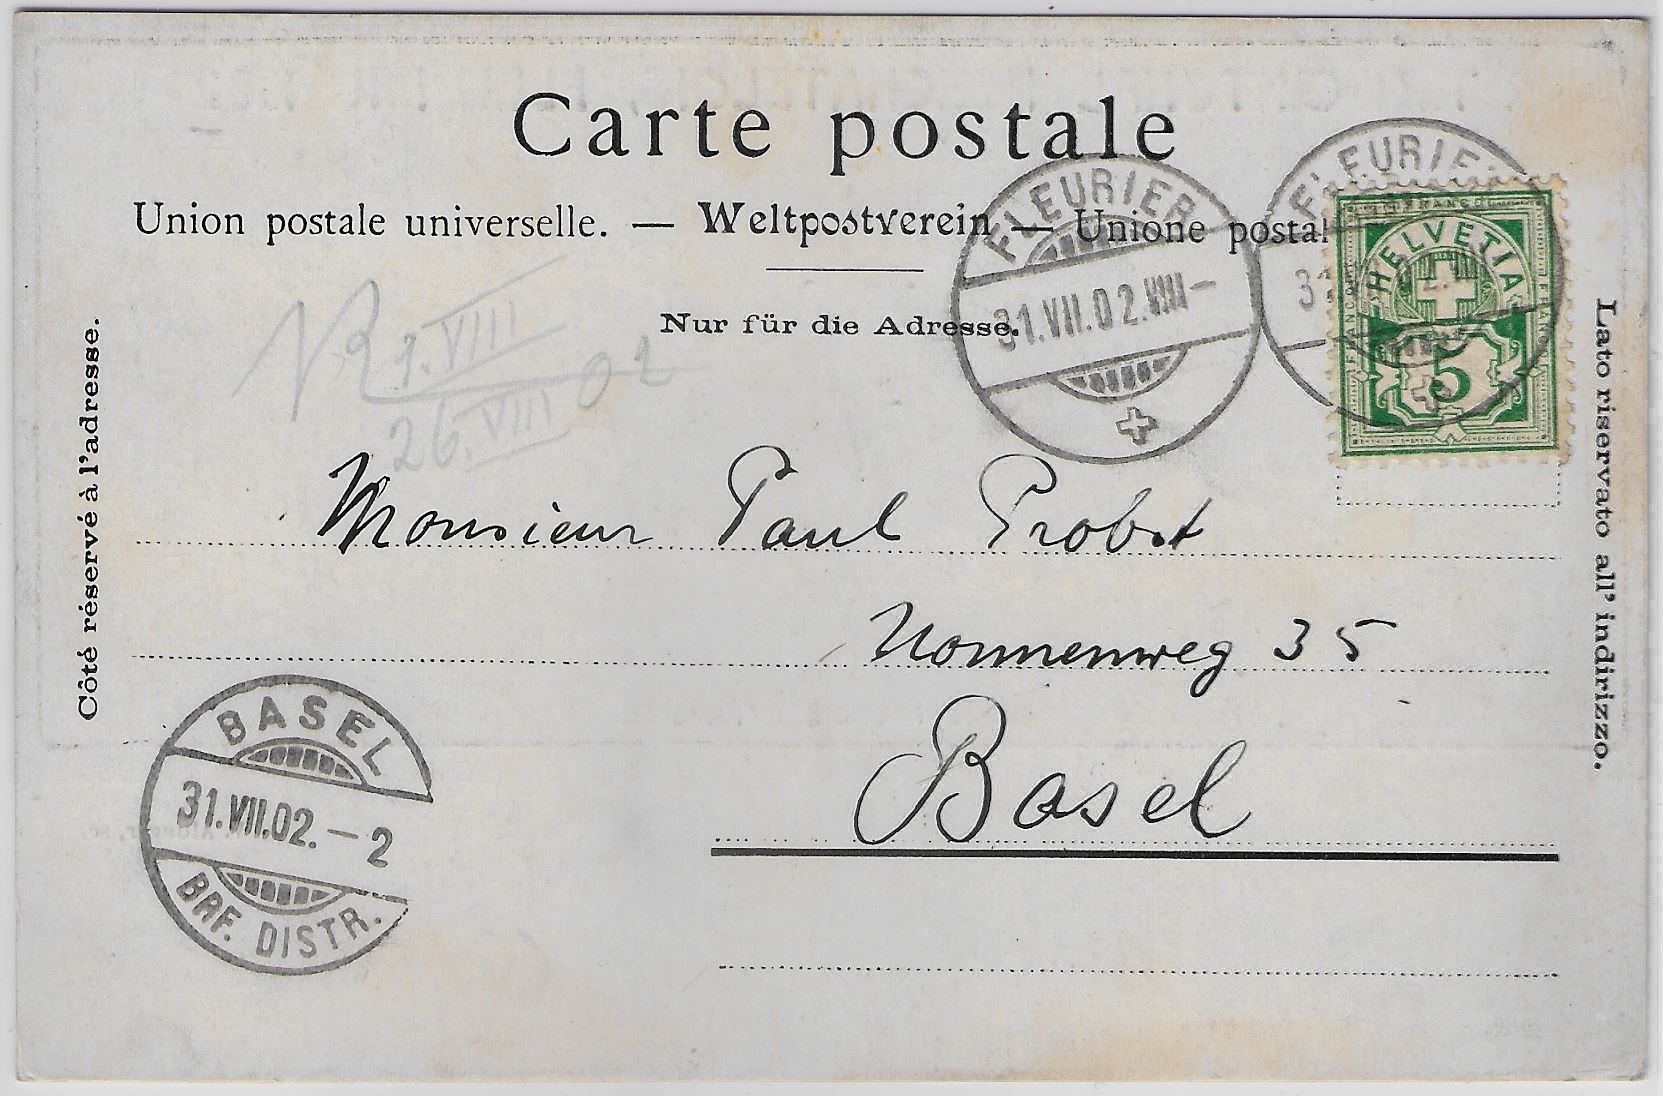 Carte postale
Union postale universelle. — Weltpostverein — Unione postal
Nur für die Adresse.
Côté réservé à l'adresse.
Lato riservato all' indirizzo.
FLEURIER
31.VII.02.VIII–
FLEURIER
HELVETIA
FRANCO
5
1.VIII
26.VIII 02
Monsieur Paul Probst
Nonnenweg 35
Basel
BASEL
31.VII.02.–2
BRF. DISTR.